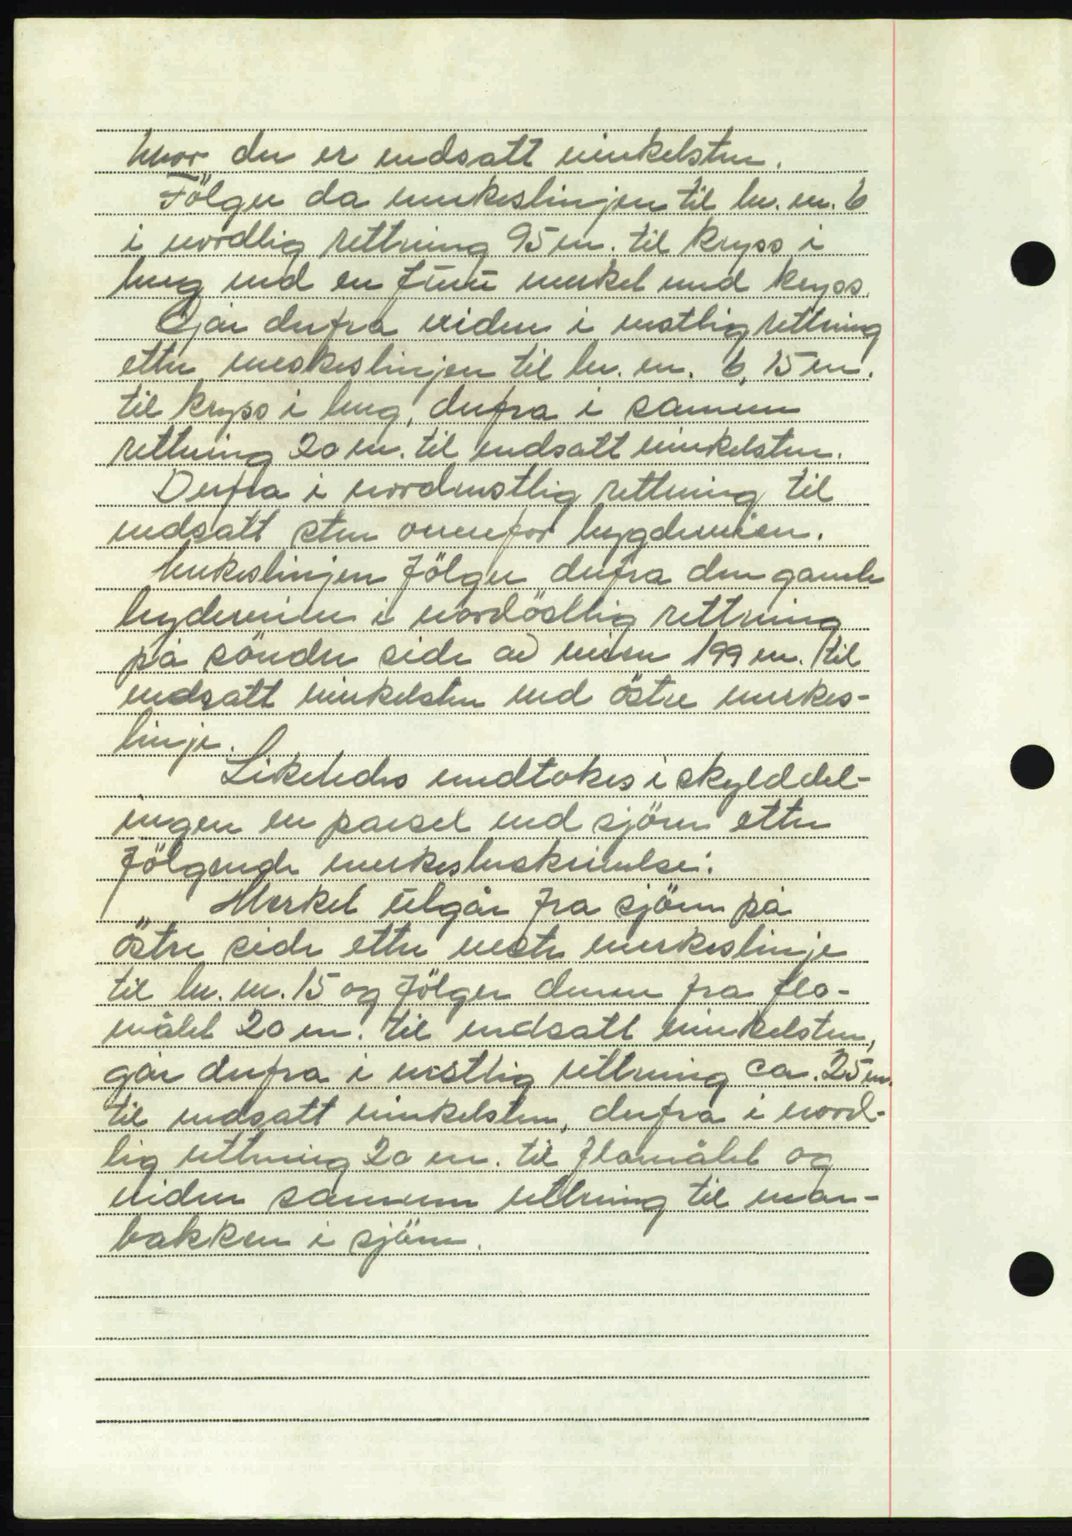 hvor der er nedsatt vinkelsten.
Fölger da merkeslinjen til br. nr. 6
i nordlig rettning 95 m. til kryss i
berg ved en furu merket med kryss.
Går derfra videre i vestlig rettning
etter merkeslinjen til br. nr. 6, 15 m.
til kryss i berg, derfra i samme
rettning 20 m. til nedsatt vinkelsten.
Derfra i nordvestlig rettning til
nedsatt sten ovenfor bygdeveien.
Merkeslinjen fölger derfra den gamle
bygdeveien i nordöstlig rettning
på söndre side av veien 199 m. til
nedsatt vinkelsten ved östre merkes-
linje.
Likeledes undtakes i skylddel-
ingen en parsel ved sjöen etter
fölgende merkesbeskrivelse:
Merket utgår fra sjöen på
östre side etter vestre merkeslinje
til br. nr. 15 og fölger denne fra flo-
målet 20 m. til nedsatt vinkelsten,
går derfra i vestlig rettning ca. 25 m.
til nedsatt vinkelsten, derfra i nord-
lig rettning 20 m. til flomålet og
videre samme rettning til mar-
bakken i sjöen.